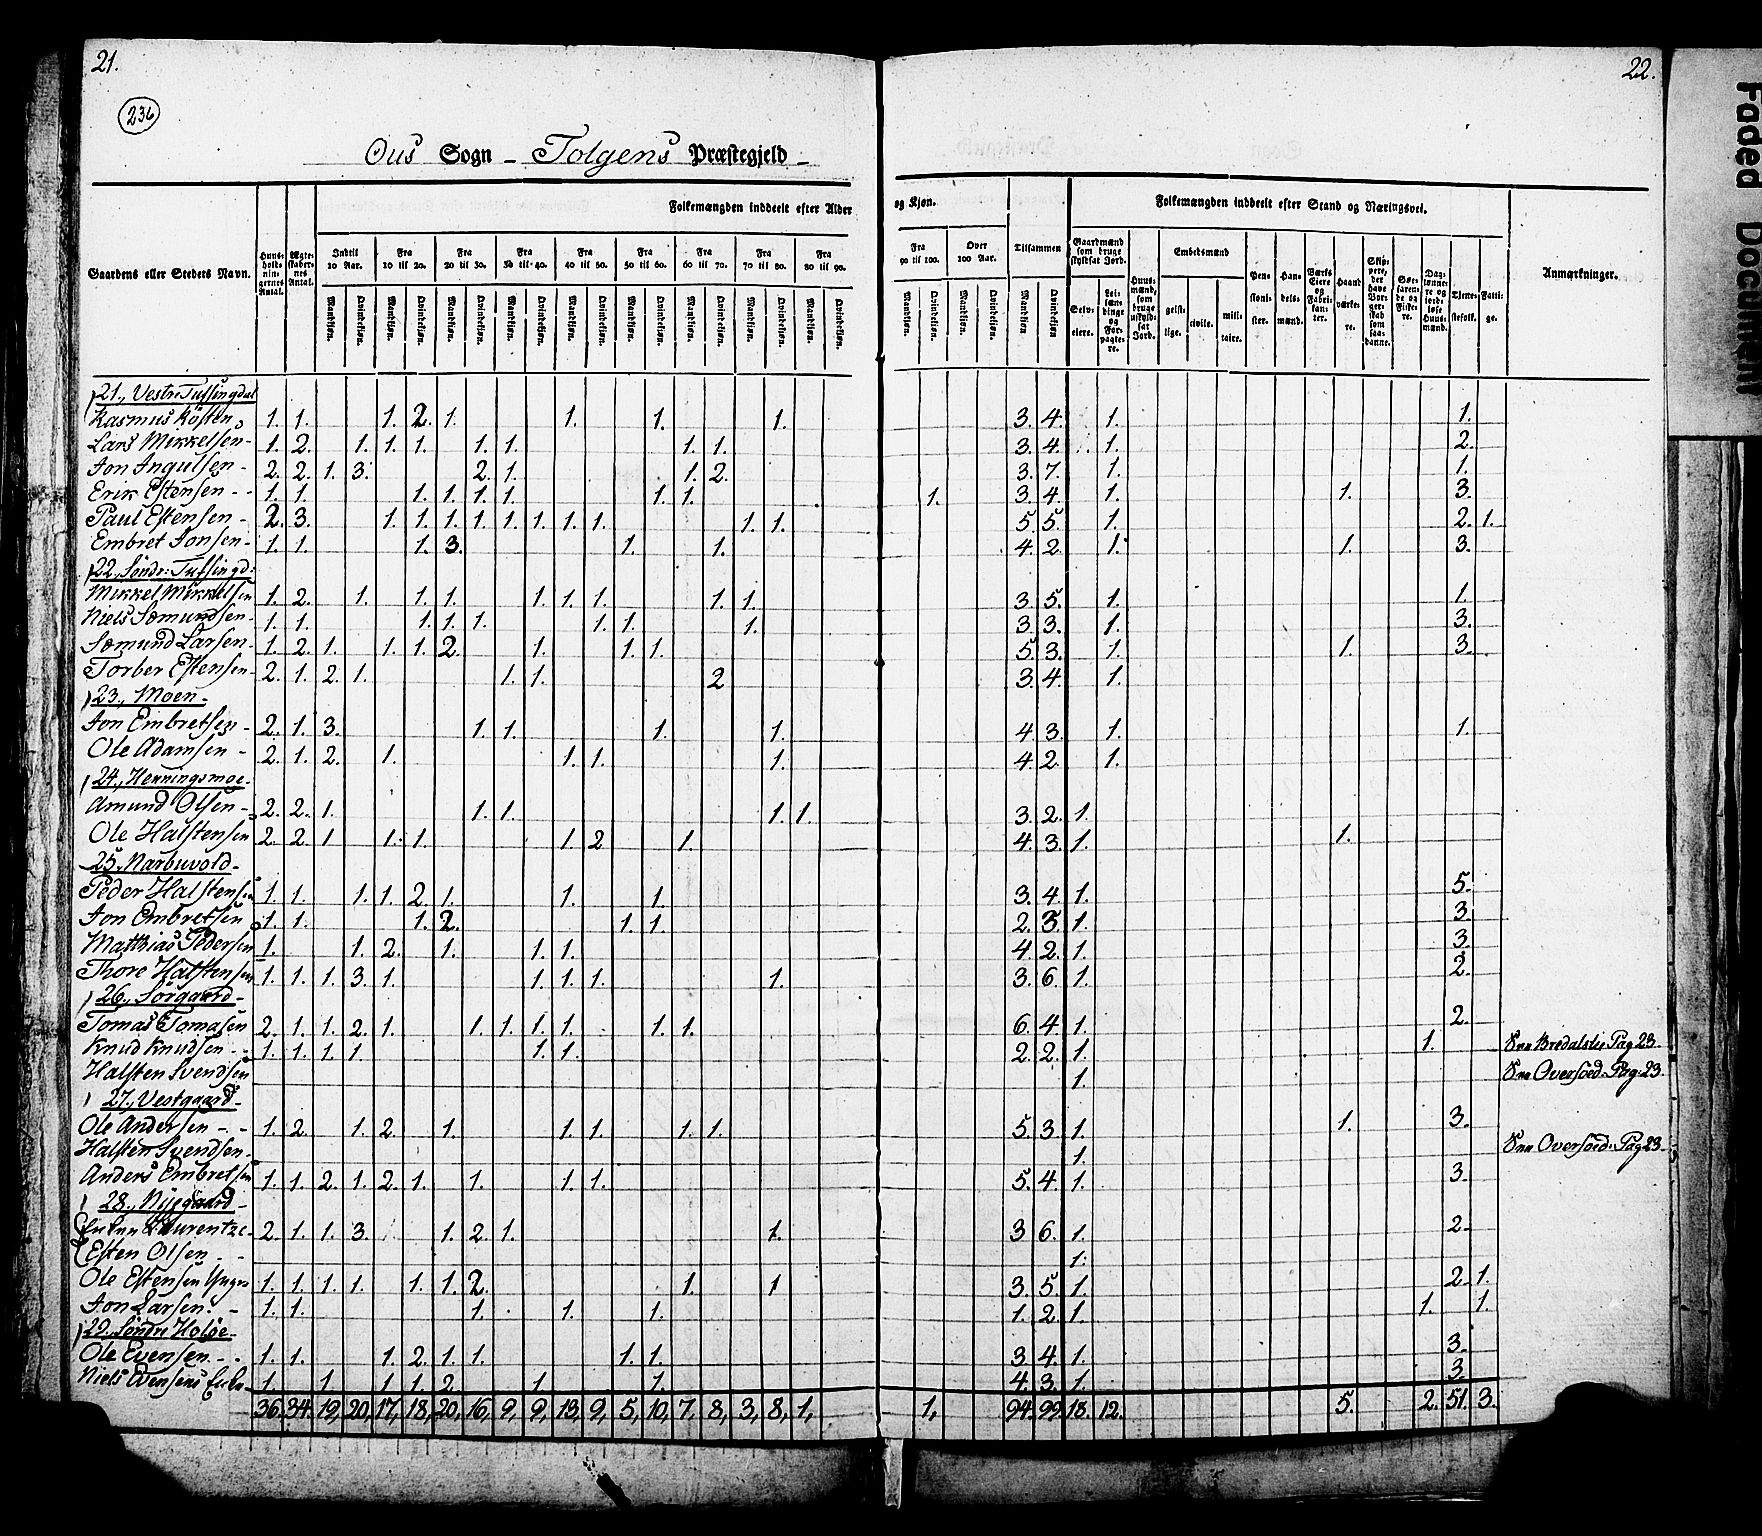 21.
22.
236
Ous Sogn - Tolgens Præstegjeld -
Folkemængden inddeelt efter Alder og Kjøn.
Folkemængden inddeelt efter Stand og Næringsvei.
Gaardens eller Stedets Navn.
Huusholdningernes Antal.
Ægteskabernes Antal.
Indtil 10 Aar.
Fra 10 til 20.
Fra 20 til 30.
Fra 30 til 40.
Fra 40 til 50.
Fra 50 til 60.
Fra 60 til 70.
Fra 70 til 80.
Fra 80 til 90.
Fra 90 til 100.
Over 100 Aar.
Tilsammen
Mandkjøn. Qvindekjøn.
Gaardmænd som bruge skyldsat Jord.
Selveiere.
Leilændinge og Forpagtere.
Huusmænd, som bruge uskyldsat Jord.
Embedsmænd
geistlige. civile. militaire.
Pensionister.
Handelsmænd.
Værks Eiere og Fabrikanter.
Haandværkere.
Skippere, der have Borgerskab som saadanne.
Søefarende og Fiskere.
Daglønnere og jordløse Huusmænd.
Tjenestefolk.
Fattige.
Anmærkninger.
21., Vestr: Tufsingdal
Rasmus Kösten 1. 1. 1. 2. 1. 1. 1. 1. 3. 4. 1. 1.
Lars Mikkelsen - 1. 2. 1. 1. 1. 1. 1. 1. 1. 3. 4. 1. 2.
Jon Ingulsen - 2. 2. 1. 3. 2. 1. 1. 2. 3. 7. 1. 1.
Erik Estensen - - 1. 1. 1. 1. 1. 1. 1. 1. 1. 3. 4. 1. 1. 3.
Paul Estensen - 2. 3. 1. 1. 1. 1. 1. 1. 1. 1. 1. 1. 5. 5. 1. 2. 1.
Embret Jonsen - 1. 1. 1. 3. 1. 1. 4. 2. 1. 1. 3.
22., Söndr: Tufsingd:
Mikkel Mikkelsen 1. 2. 1. 1. 1. 1. 1. 1. 1. 1. 3. 5. 1. 1.
Niels Sæmundsen - 1. 1. 1. 1. 1. 1. 1. 1. 3. 3. 1. 3.
Sæmund Larsen - 1. 2. 1. 1. 1. 2. 1. 1. 1. 5. 3. 1. 1. 3.
Torber Estensen - 2. 1. 2. 1. 1. 1. 2 3. 4. 1.
23., Moen -
Jon Embretsen - 2. 1. 3. 1. 1. 1. 1. 4. 3. 1. 1.
Ole Adamsen - 2. 1. 2. 1. 1. 1. 1. 4. 2. 1.
24., Henningsmoe -
Amund Olsen - 2. 2. 1. 1. 1. 1. 1. 3. 2. 1.
Ole Halstensen 2. 2. 1 1. 1. 1. 2 1. 4. 3. 1. 1.
25., Narbuvold -
Peder Halstensen 1. 1. 1. 1. 2. 1. 1. 1. 3. 4. 1. 5.
Jon Embretsen 1. 1. 1. 2. 1. 1. 2. 3. 1. 3.
Matthias Pedersen 1. 1. 2. 1. 1. 1. 4. 2. 1. 3.
Thore Halstensen 1. 1. 1. 3. 1. 1. 1. 1. 1. 3. 6. 1. 2.
26., Sörgaard -
Tomas Tomasen 2. 1. 1. 2. 1. 1. 1. 1. 1. 1. 1. 6. 4. 1. 2.
Knud Knudsen - - 1. 1. 1. 1. 1. 1. 2. 2. 1. 1. See Bredalslie Pag 23.
Halsten Svendsen 1. See Oversöed: Pag: 23.
27., Vestgaard -
Ole Andersen - - 1. 2. 1. 2. 1. 1. 1. 1. 1. 5. 3. 1. 1. 3.
Halsten Svendsen. 1. See Oversöed: Pag 23.
Anders Embretsen 1. 1. 2. 1. 2. 1. 1. 1. 1. 5. 4. 1. 3.
28., Nyegaard -
Enken Laurentze - 2. 1. 1. 3. 1. 2. 1. 1. 3 6. 1. 2.
Esten Olsen - - 1.
Ole Estensen Yngre 1. 1. 1. 1. 1. 1. 2. 1. 1 3. 5. 1. 2. 1.
Jon Larsen. - 1. 1. 1. 1. 1. 1. 2. 1. 1. 1.
29., Söndre Holöe -
Ole Evensen. - - 1. 1. 1. 2. 1. 1. 1. 1. 3. 4. 1. 3.
Niels Evensens Enke - 1. 1 1. 1. 2. 1. 1. 4. 3. 1. 3.
36. 34. 19, 20, 17, 18, 20, 16, 9, 9, 13, 9, 5, 10, 7. 8, 3, 8, 1, 1, 94. 99. 18. 12. 5. 2. 51. 3.
Faded Document